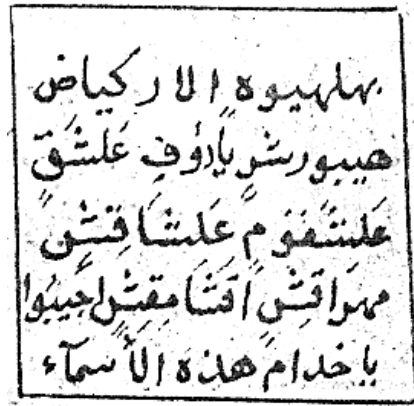 بهلهيوه الاركياض
هيبورشٍ يأروُفِ عَلشَقٍ
عَلشَقَوَمٍ عَلشَاقِشٍ
مهرَاقِشٍ اَقشَامِقِشٍ اَجيبُوا
ياخدام هذه الأسمآء